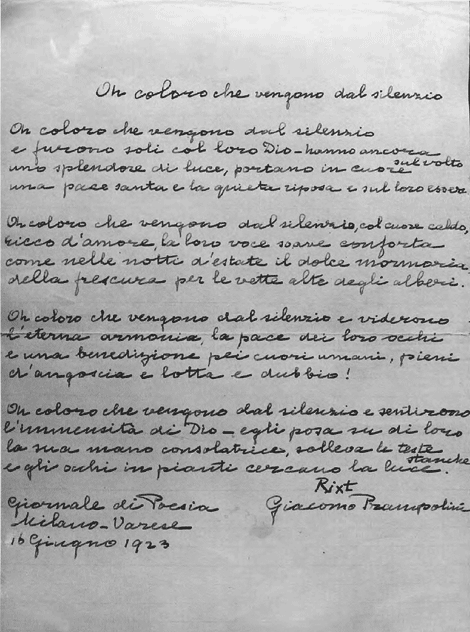 Oh coloro che vengono dal silenzio
Oh coloro che vengono dal silenzio
e furono soli col loro Dio - hanno ancora
sul volto
uno splendore di luce, portano in cuore
una pace santa e la quieta riposa e sul loro essere
Oh coloro che vengono dal silenzio, col cuore caldo,
ricco d'amore, la loro voce soave conforta
come nelle notti d'estate il dolce mormorio
della frescura per le vette alte degli alberi.
Oh coloro che vengono dal silenzio e viderono
l'eterna armonia, la pace dei loro occhi
e una benedizione pei cuori umani, pieni
d'angoscia e lotta e dubbio!
Oh coloro che vengono dal silenzio e sentirono
l'immensità di Dio - egli posa su di loro
la sua mano consolatrice, solleva le teste
stanche
e gli occhi in pianti cercano la luce.
Rixt
Giornale di Poesia
Giacomo Prampolini
Milano - Varese
16 Giugno 1923